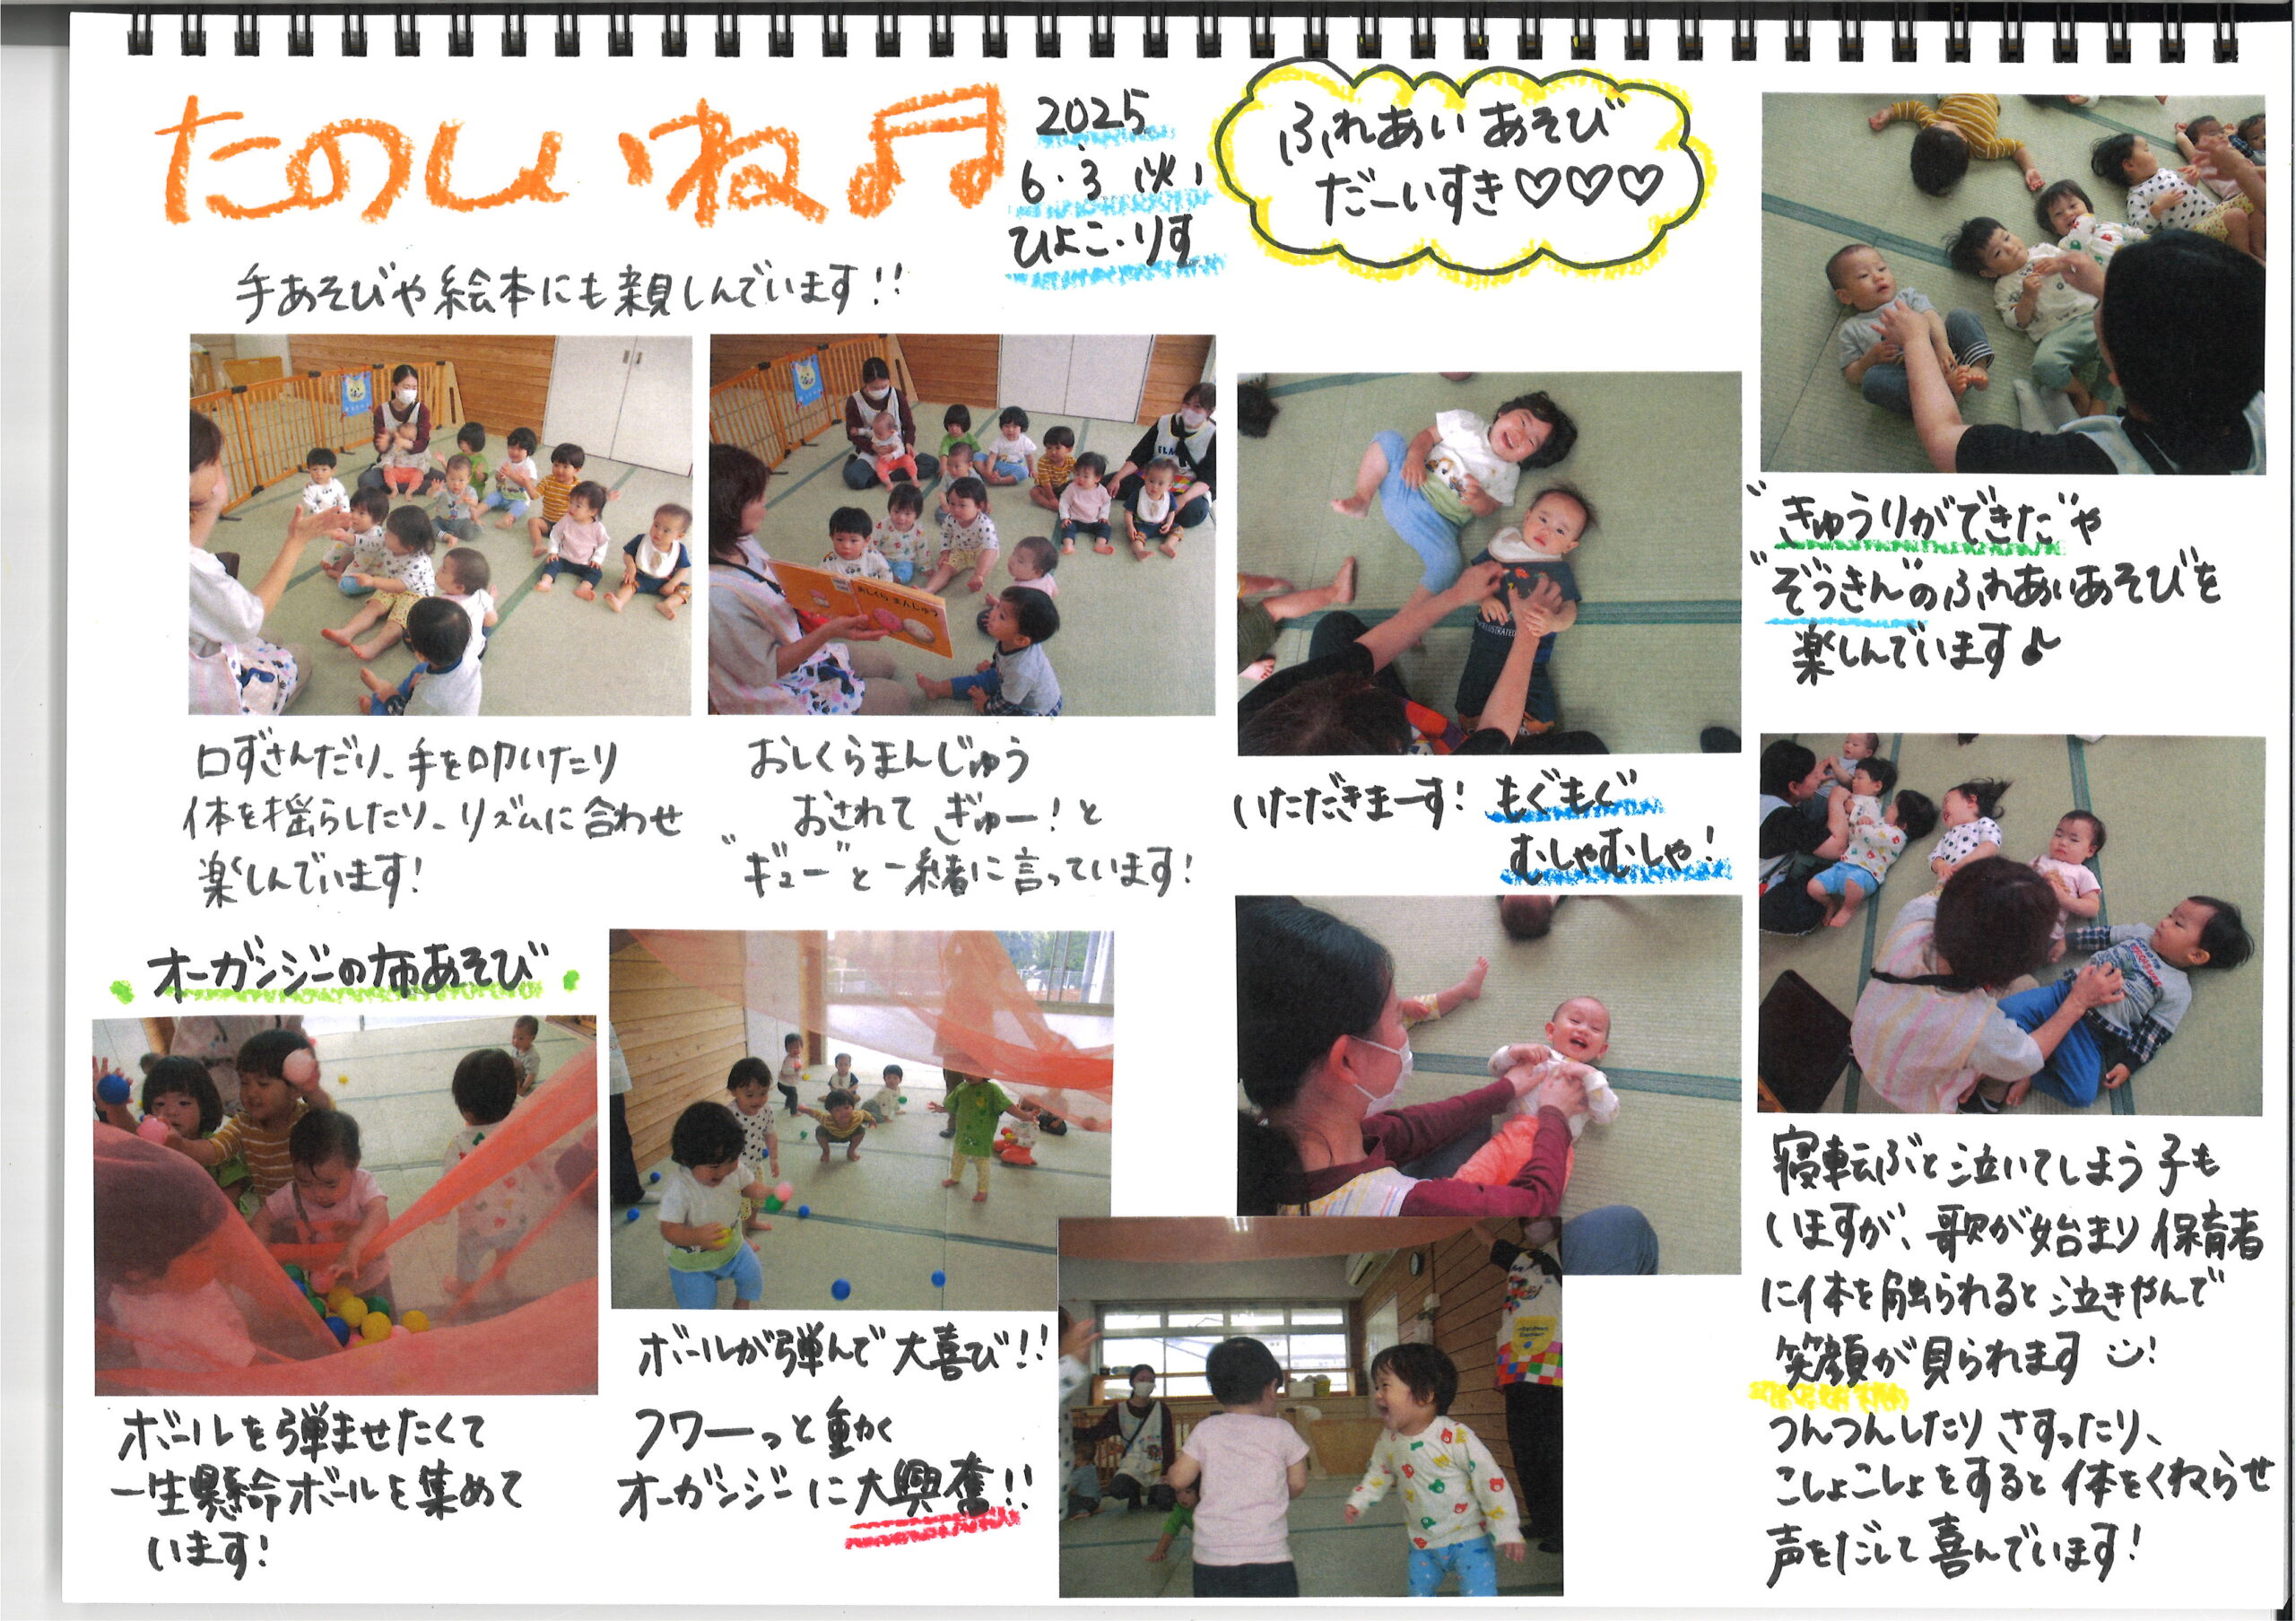 たのしいね♫
2025
6.3(火)
ひよこ・りす
手あそびや絵本にも親しんでいます!!
口ずさんだり、手を叩いたり
体を揺らしたり、リズムに合わせ
楽しんでいます!
おしくらまんじゅう
おしくらまんじゅう
おされて ぎゅー!と
"ギュー"と一緒に言っています!
オーガンジーの布あそび
ボールを弾ませたくて
一生懸命ボールを集めて
います!
ボールが弾んで大喜び!!
フワーっと動く
オーガンジーに大興奮!!
ふれあいあそび
だーいすき♡♡♡
いただきまーす! もぐもぐ
むしゃむしゃ!
"きゅうりができた"や
"ぞうきん"のふれあいあそびを
楽しんでいます♪
寝転ぶと泣いてしまう子も
いますが、歌が始まり保育者
に体を触られると泣きやんで
笑顔が見られます!
つんつんしたりさすったり、
こしょこしょをすると体をくねらせ
声をだして喜んでいます!